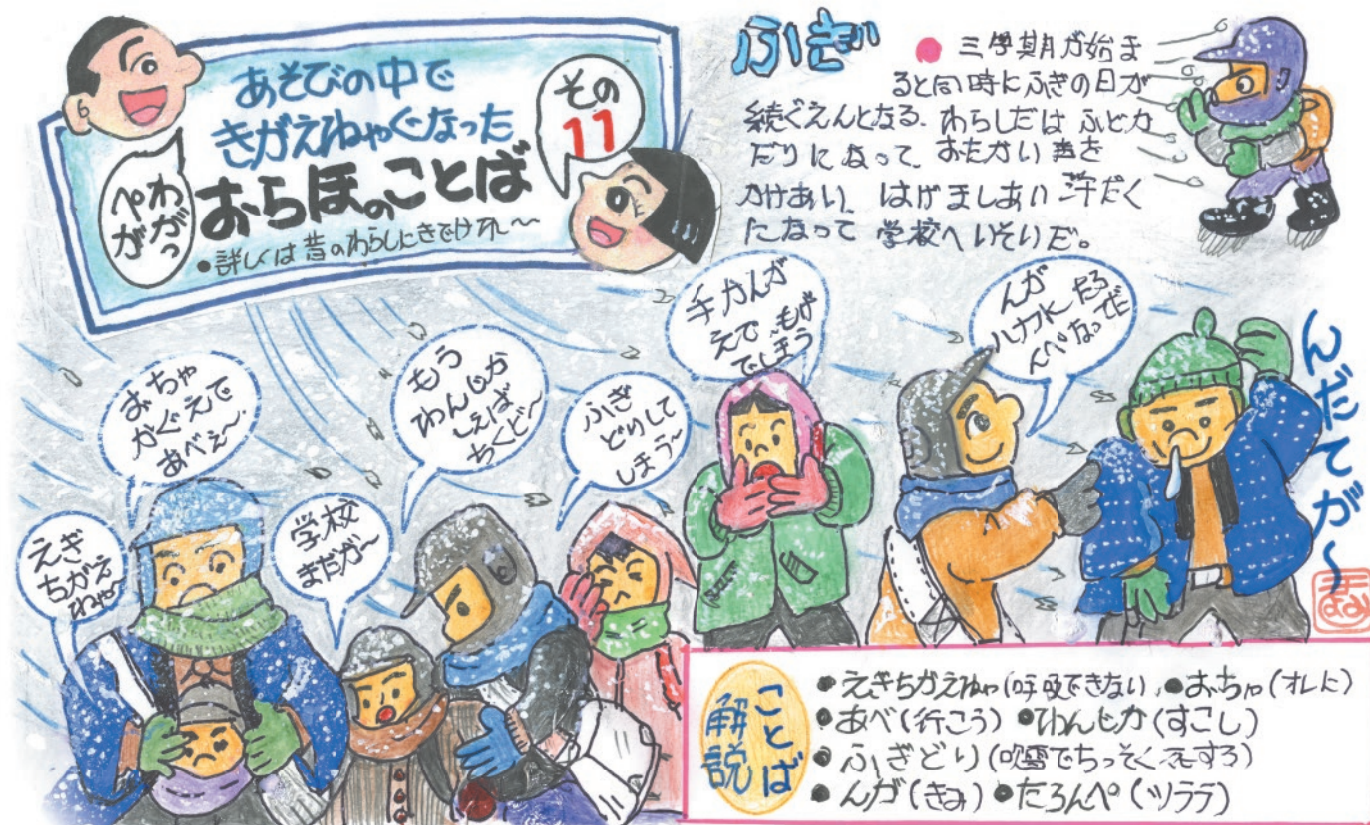 あそびの中で
きがえねゃぐなった
おらほのことば
●詳しくは昔のわらしにきでけれ～
その
11
わがっ
ぺが
ふぎ
● 三學期が始ま
ると同時にふぎの日が
続ぐえんとなる。わらしだは ふとか
だりになって、おたかい 声を
かけあい、はげましあい 汗だく
になって 学校へいそいだ。
えぎ
ちがえ
ねゃ～
おちゃ
かぐえで
あべぇ～
学校
まだが～
もう
わんじか
しえば
ちくど～
ふぎ
どりして
しまう～
手かんが
えで～もげ
でしまう
んが
ハナ水～たろ
んぺなってだ
んだてが～
ことば
解説
●えぎちがえねゃ(呼吸できない)●おちゃ(オレに)
●あべ(行こう) ●わんじか(すこし)
●ふぎどり(吹雪でちっそく死する)
●んが(きみ)●たろんぺ(ツララ)